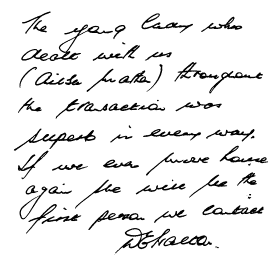 The young lady who
dealt with us
(Ailsa Matta) throughout
the transaction was
superb in every way.
If we ever move house
again she will be the
first person we contact